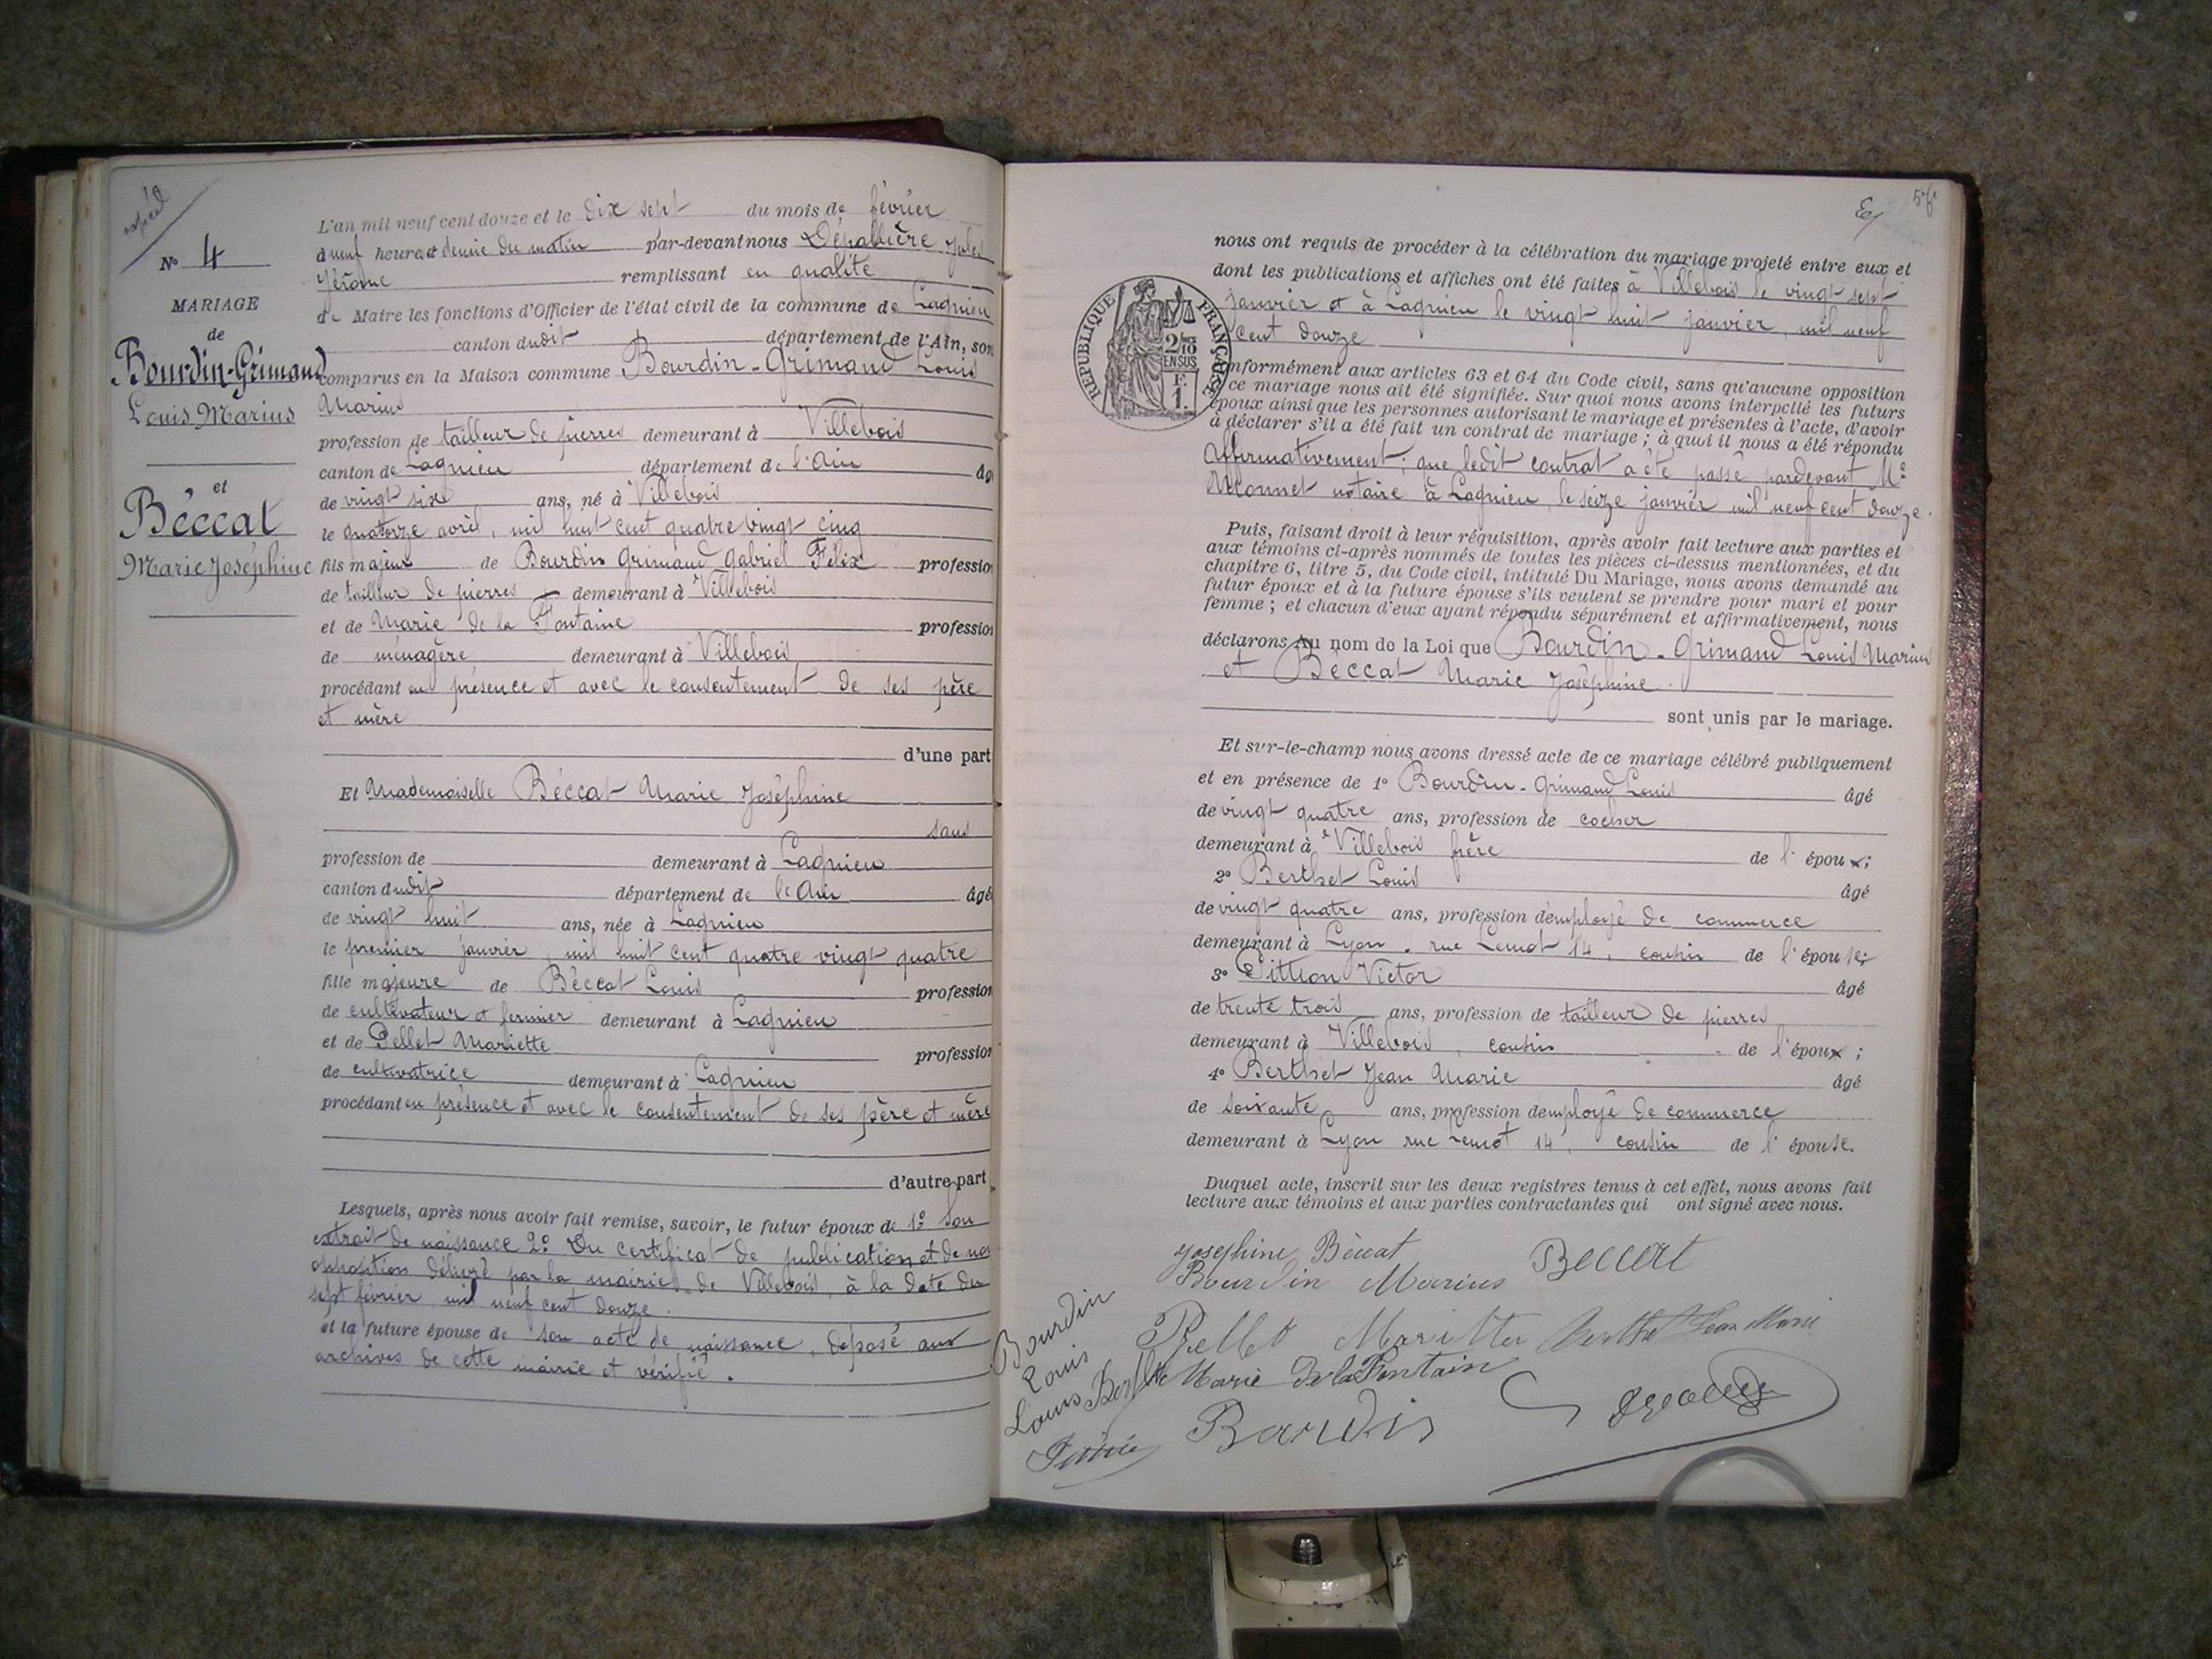 expéd
N° 4
MARIAGE
de
Bourdin-Grimaud
Louis Marius
et
Béccat
Marie Joséphine
L'an mil neuf cent douze et le dix sept du mois de février
à neuf heures et demie du matin par-devant nous Dépallière Jules
Jérôme remplissant en qualité
de Maire les fonctions d'Officier de l'état civil de la commune de Lagnieu
canton dudit département de l'Ain, son
comparus en la Maison commune Bourdin-Grimaud Louis
Marius
profession de tailleur de pierres demeurant à Villebois
canton de Lagnieu département de l'Ain âg
de vingt six ans, né à Villebois
le quatorze avril, mil huit cent quatre vingt cinq
fils majeur de Bourdin Grimaud Gabriel Félix profession
de tailleur de pierres demeurant à Villebois
et de Marie de la Fontaine profession
de ménagère demeurant à Villebois
procédant en présence et avec le consentement de ses père
et mère
d'une part
Et Mademoiselle Béccat Marie Joséphine
sans
profession de demeurant à Lagnieu
canton dudit département de l'Ain âgé
de vingt huit ans, née à Lagnieu
le premier janvier, mil huit cent quatre vingt quatre
fille majeure de Béccat Louis profession
de cultivateur et fermier demeurant à Lagnieu
et de Pellet Mariette profession
de cultivatrice demeurant à Lagnieu
procédant en présence et avec le consentement de ses père et mère
d'autre part
Lesquels, après nous avoir fait remise, savoir, le futur époux de 1° Son
extrait de naissance 2° Du certificat de publication et de non
opposition délivré par la mairie de Villebois, à la date du
sept février mil neuf cent douze.
et la future épouse de son acte de naissance, déposé aux
archives de cette mairie et vérifié.
nous ont requis de procéder à la célébration du mariage projeté entre eux et
dont les publications et affiches ont été faites à Villebois le vingt sept
janvier et à Lagnieu le vingt huit janvier, mil neuf
cent douze
RÉPUBLIQUE FRANÇAISE
2/10
EN SUS
F.
1.
nformément aux articles 63 et 64 du Code civil, sans qu'aucune opposition
ce mariage nous ait été signifiée. Sur quoi nous avons interpellé les futurs
époux ainsi que les personnes autorisant le mariage et présentes à l'acte, d'avoir
à déclarer s'il a été fait un contrat de mariage ; à quoi il nous a été répondu
Affirmativement; que ledit contrat a été passé pardevant Me
notaire à Lagnieu, le seize janvier mil neuf cent douze.
Puis, faisant droit à leur réquisition, après avoir fait lecture aux parties et
aux témoins ci-après nommés de toutes les pièces ci-dessus mentionnées, et du
chapitre 6, titre 5, du Code civil, intitulé Du Mariage, nous avons demandé au
futur époux et à la future épouse s'ils veulent se prendre pour mari et pour
femme ; et chacun d'eux ayant répondu séparément et affirmativement, nous
déclarons au nom de la Loi que Bourdin-Grimaud Louis Marius
et Béccat Marie Joséphine.
sont unis par le mariage.
Et sur-le-champ nous avons dressé acte de ce mariage célébré publiquement
et en présence de 1° Bourdin-Grimaud Louis âgé
de vingt quatre ans, profession de cocher
demeurant à Villebois frère de l'époux;
2° Berthet Louis âgé
de vingt quatre ans, profession d'employé de commerce
demeurant à Lyon, rue Lemot 14, cousin de l'épouse;
3° Pittion Victor âgé
de trente trois ans, profession de tailleur de pierres
demeurant à Villebois, cousin de l'époux ;
4° Berthet Jean Marie âgé
de soixante ans, profession d'employé de commerce
demeurant à Lyon rue Lemot 14, cousin de l'épouse.
Duquel acte, inscrit sur les deux registres tenus à cet effet, nous avons fait
lecture aux témoins et aux parties contractantes qui ont signé avec nous.
Joséphine Béccat
Beccat
Bourdin Marius
Bourdin
Louis
Pellet Mariette Berthet Jean Marie
Louis Berthet Marie De la Fontain
Bourdin